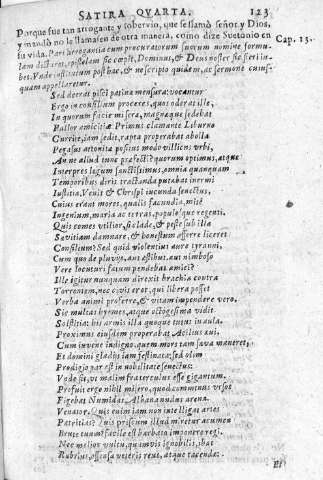 SATIRA QVARTA. 123
Porque fue tan arrogante y sobervio, que se llamó señor, y Dios,
y mandò no le llamasen de otra manera, como dize Suetonio en
su vida. Pari arrogantia cum procuratorum suorum nomine formu-
lam dictaret, epistolam sic cœpit, Dominus, & Deus noster sic fieri iu-
bet. Vnde institutum posthac, & ne scripto quidem, ac sermone cuius-
quam appellaretur.
Cap. 13.
Sed deerat pisci patina mensura: vocantur
Ergo in consilium proceres, quos oderat ille,
In quorum facie miseræ, magnæque sedebat
Pallor amicitiæ. Primus clamante Liburno
Currite, iam sedit, rapta properabat abolla
Pegasus attonitæ positus modo villicus vrbi,
An ne aliud tunc præfecti? quorum optimus, atque
Interpres legum sanctissimus, omnia quanquam
Temporibus diris tractanda putabat inermi
Iustitia, Venit & Chrispi iucunda senectus,
Cuius erant mores, qualis facundia, mite
Ingenium, maria ac terras, populosque regenti.
Quis comes vtilior, si clade, & peste sub illa
Sævitiam damnare, & honestum afferre liceret
Consilium? Sed quid violentius aure tyranni,
Cum quo de pluvijs, aut æstibus, aut nimboso
Vere locuturi fatum pendebat amici?
Ille igitur nunquam direxit brachia contra
Torrentem, nec civis erat, qui libera posset
Verba animi proferre, & vitam impendere vero.
Sic multas hyemes, atque octogesima vidit
Solstitia: his armis illa quoque tutus in aula.
Proximus eiusdem properabat Acilius ævi,
Cum iuvene indigno, quem mors tam sæva maneret,
Et domini gladiis iam festinata: sed olim
Prodigio par est in nobilitate senectus:
Vnde fit, vt malim fraterculus esse gigantum.
Profuit ergo nihil misero, quod comminus vrsos
Figebat Numidas, Albana nudus arena
Venator. Quis enim iam non intelligat artes
Patritias? Quis priscum illud miretur acumen
Brute tuum? facile est barbato imponere regi.
Nec melior vultu, quamvis ignobilis, ibat
Rubrius, offensæ veteris reus, atque tacendæ.
Et